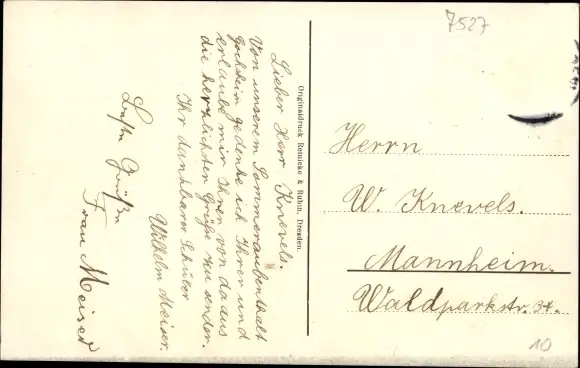 7527
Lieber Herr Knevels.
Von unserem Sommeraufenthalt
Hochheim gedenke ich Ihrer und
erlaube mir Ihnen von da aus
die herzlichsten Grüße zu senden.
Ihr dankbarer Schüler
Wilhelm Meiser.
Beste Grüße
Frau Meiser
Originaldruck Reinicke & Rubin, Dresden.
Herrn
W. Knevels.
Mannheim.
Waldparkstr. 34.
10